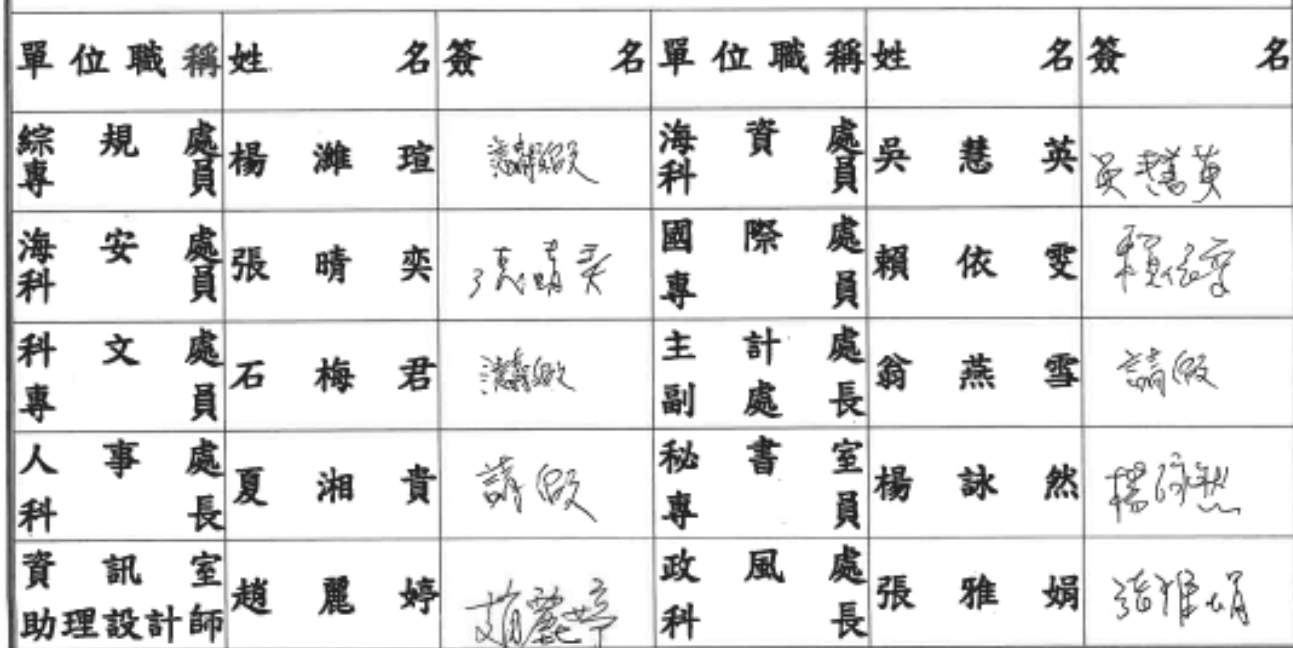 單位職稱 姓名 簽名 單位職稱 姓名 簽名
綜規處專員 楊濰瑄 請假 海資處科員 吳慧英 吳慧英
海安處科員 張晴奕 張晴奕 國際處專員 賴依雯 賴依雯
科文處專員 石梅君 請假 主計處副處長 翁燕雪 請假
人事處科長 夏湘貴 請假 秘書室專員 楊詠然 楊詠然
資訊室助理設計師 趙麗婷 趙麗婷 政風處科長 張雅娟 張雅娟